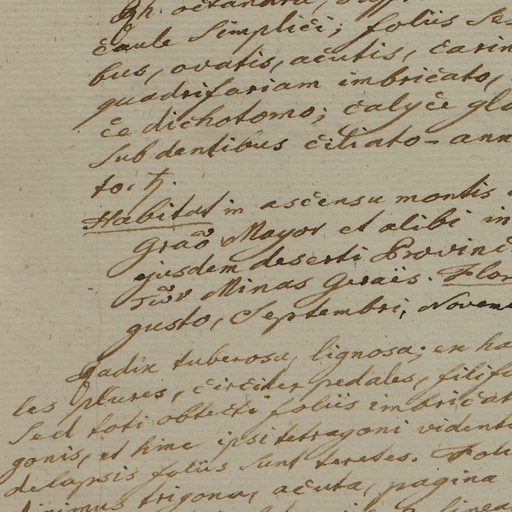 Gh. octandra,
caule simplici; foliis se
bus, ovatis, acutis, carin
quadrifariam imbricato,
ce dichotomo; calyce gla
sub dentibus ciliato-ann
to. ♄.
Habitat in ascensu montis
Graõ Mayor et alibi in
ejusdem deserti Provinc
Minas Geraës. Flor
gusto, Septembri, Novem
Radix tuberosa, lignosa; ex ha
les plures, circiter pedales, filifo
sed toti obtecti foliis imbricat
gonis, et hinc ipsi tetragoni vident
delapsis foliis sunt teretes. Foli
trigona, acuta, pagina
linea